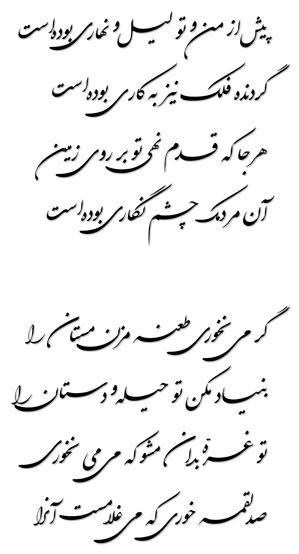 پیش از من و تو لیل و نهاری بوده‌است
گردنده فلک نیز به کاری بوده‌است
هر جا که قدم نهی تو بر روی زمین
آن مردمک چشم نگاری بوده‌است
گر می نخوری طعنه مزن مستان را
بنیاد مکن تو حیله و دستان را
تو غره بدان مشو که می می نخوری
صد لقمه خوری که می غلامست آنرا